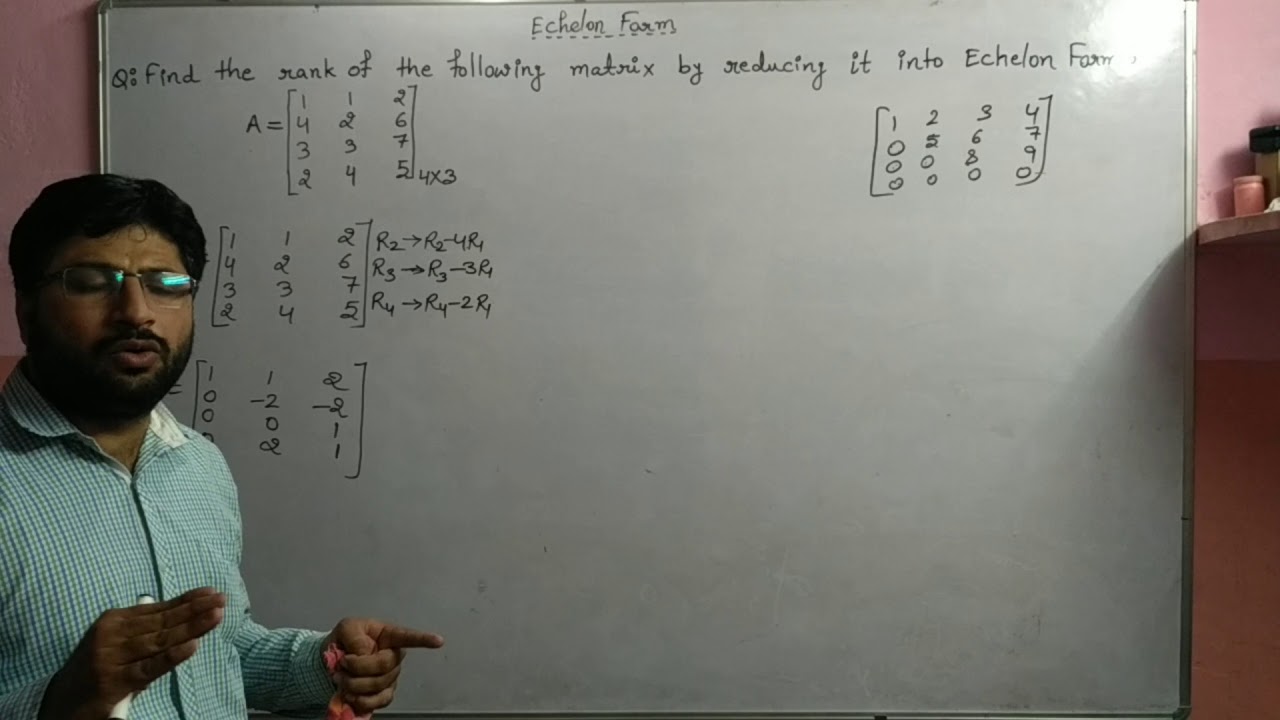 Echelon Form
Q: Find the rank of the following matrix by reducing it into Echelon Form.
A = [1 1 2
4 2 6
3 3 7
2 4 5] 4×3
[1 2 3 4
0 5 6 7
0 0 8 9
0 0 0 0]
[1 1 2] R2→R2-4R1
4 2 6
3 3 7 R3→R3-3R1
2 4 5 R4→R4-2R1
= [1 1 2
0 -2 -2
0 0 1
2 1]